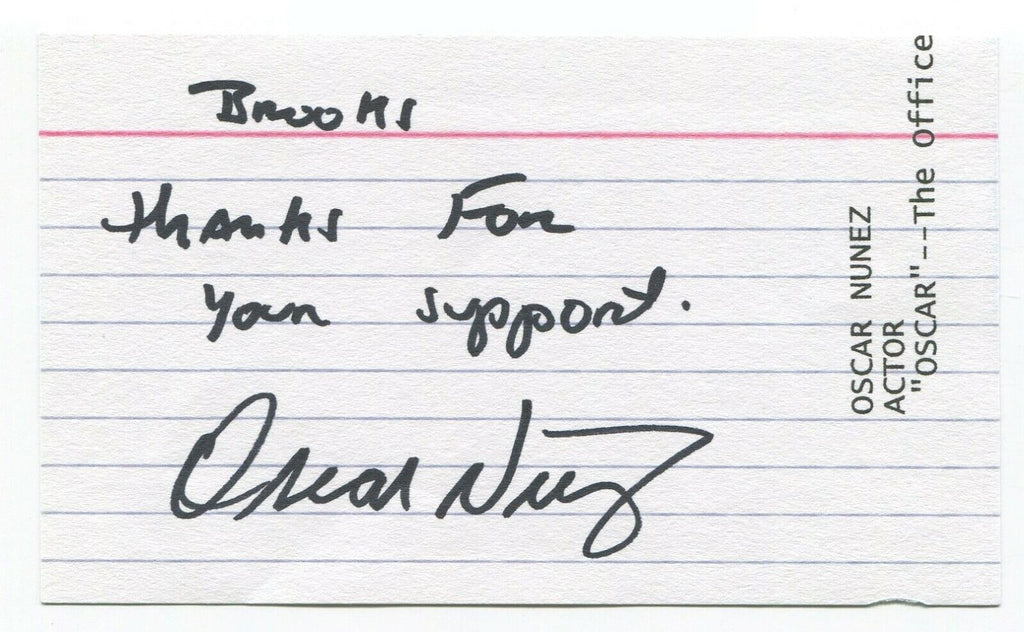 Brooks
thanks For
your support.
Oscar Nuñez
OSCAR NUNEZ
ACTOR
"OSCAR"--The Office